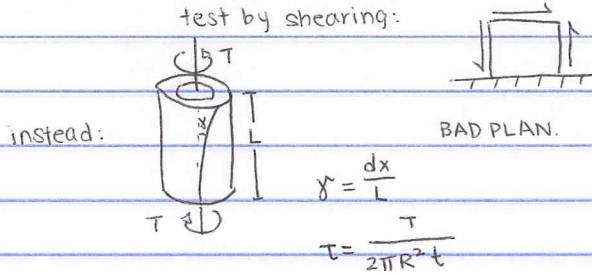 test by shearing:
T
instead:
γ
L
BAD PLAN.
γ = dx/L
T
τ = T/2πR²t